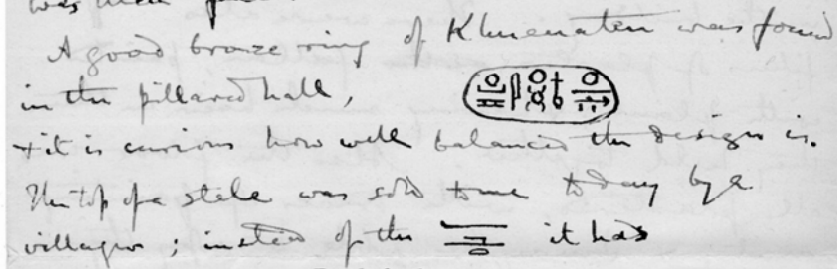 was
A good bronze ring of Khuenaten was found
in the pillared hall,
+ it is curious how well balanced the design is.
The top of a stele was sold to me today by a
villager ; instead of the it has